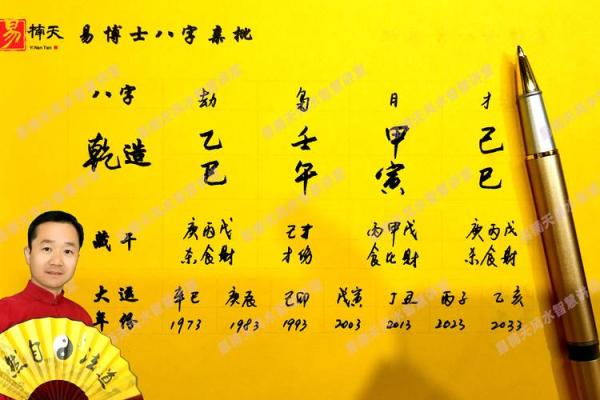 易 楠天 易博士八字亲批
Yi Nan Tian
八字 劫 枭 日 才
乾造 乙 壬 甲 己
巳 午 寅 巳
藏干 庚丙戊 己丁 丙甲戊 庚丙戊
杀食财 才伤 食比财 杀食财
大运 辛巳 庚辰 己卯 戊寅 丁丑 丙子 乙亥
年份 1973 1983 1993 2003 2013 2023 2033
然自法道
易楠天风水智慧讲堂